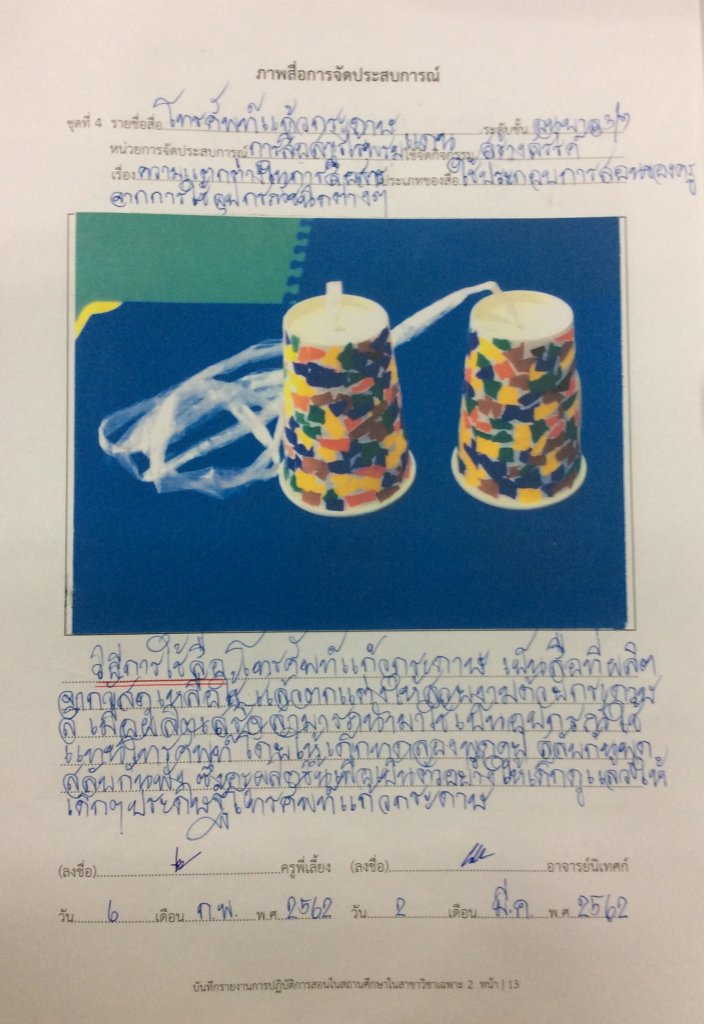 ภาพสื่อการจัดประสบการณ์
ชุดที่ 4 รายชื่อสื่อ โทรศัพท์แก้วกระดาษ ระดับชั้น อนุบาล 3/7
หน่วยการจัดประสบการณ์ การสื่อสารไร้พรมแดน ใช้จัดกิจกรรม สร้างสรรค์
เรื่อง ความแตกต่างในการสื่อสาร ประเภทของสื่อ ใช้ประกอบการสอนของครู
จากการใช้อุปกรณ์ชนิดต่างๆ
วิธีการใช้สื่อ โทรศัพท์แก้วกระดาษ เป็นสื่อที่ผลิต
จากวัสดุเหลือใช้ แล้วตกแต่งให้สวยงามด้วยกระดาษ
สี เมื่อผลิตเสร็จสามารถนำมาใช้เป็นอุปกรณ์ใช้
แทนโทรศัพท์ โดยให้เด็กทดลองพูดคุย สลับกันพูด
สลับกันฟัง ซึ่งจะผลิตขึ้นเพื่อเป็นตัวอย่างให้เด็กดู แล้วให้
เด็กๆประดิษฐ์โทรศัพท์แก้วกระดาษ
(ลงชื่อ) ครูพี่เลี้ยง (ลงชื่อ) อาจารย์นิเทศก์
วัน 6 เดือน ก.พ. พ.ศ. 2562 วัน 2 เดือน มี.ค. พ.ศ. 2562
บันทึกรายงานการปฏิบัติการสอนในสถานศึกษาในสาขาวิชาเฉพาะ 2 หน้า | 13